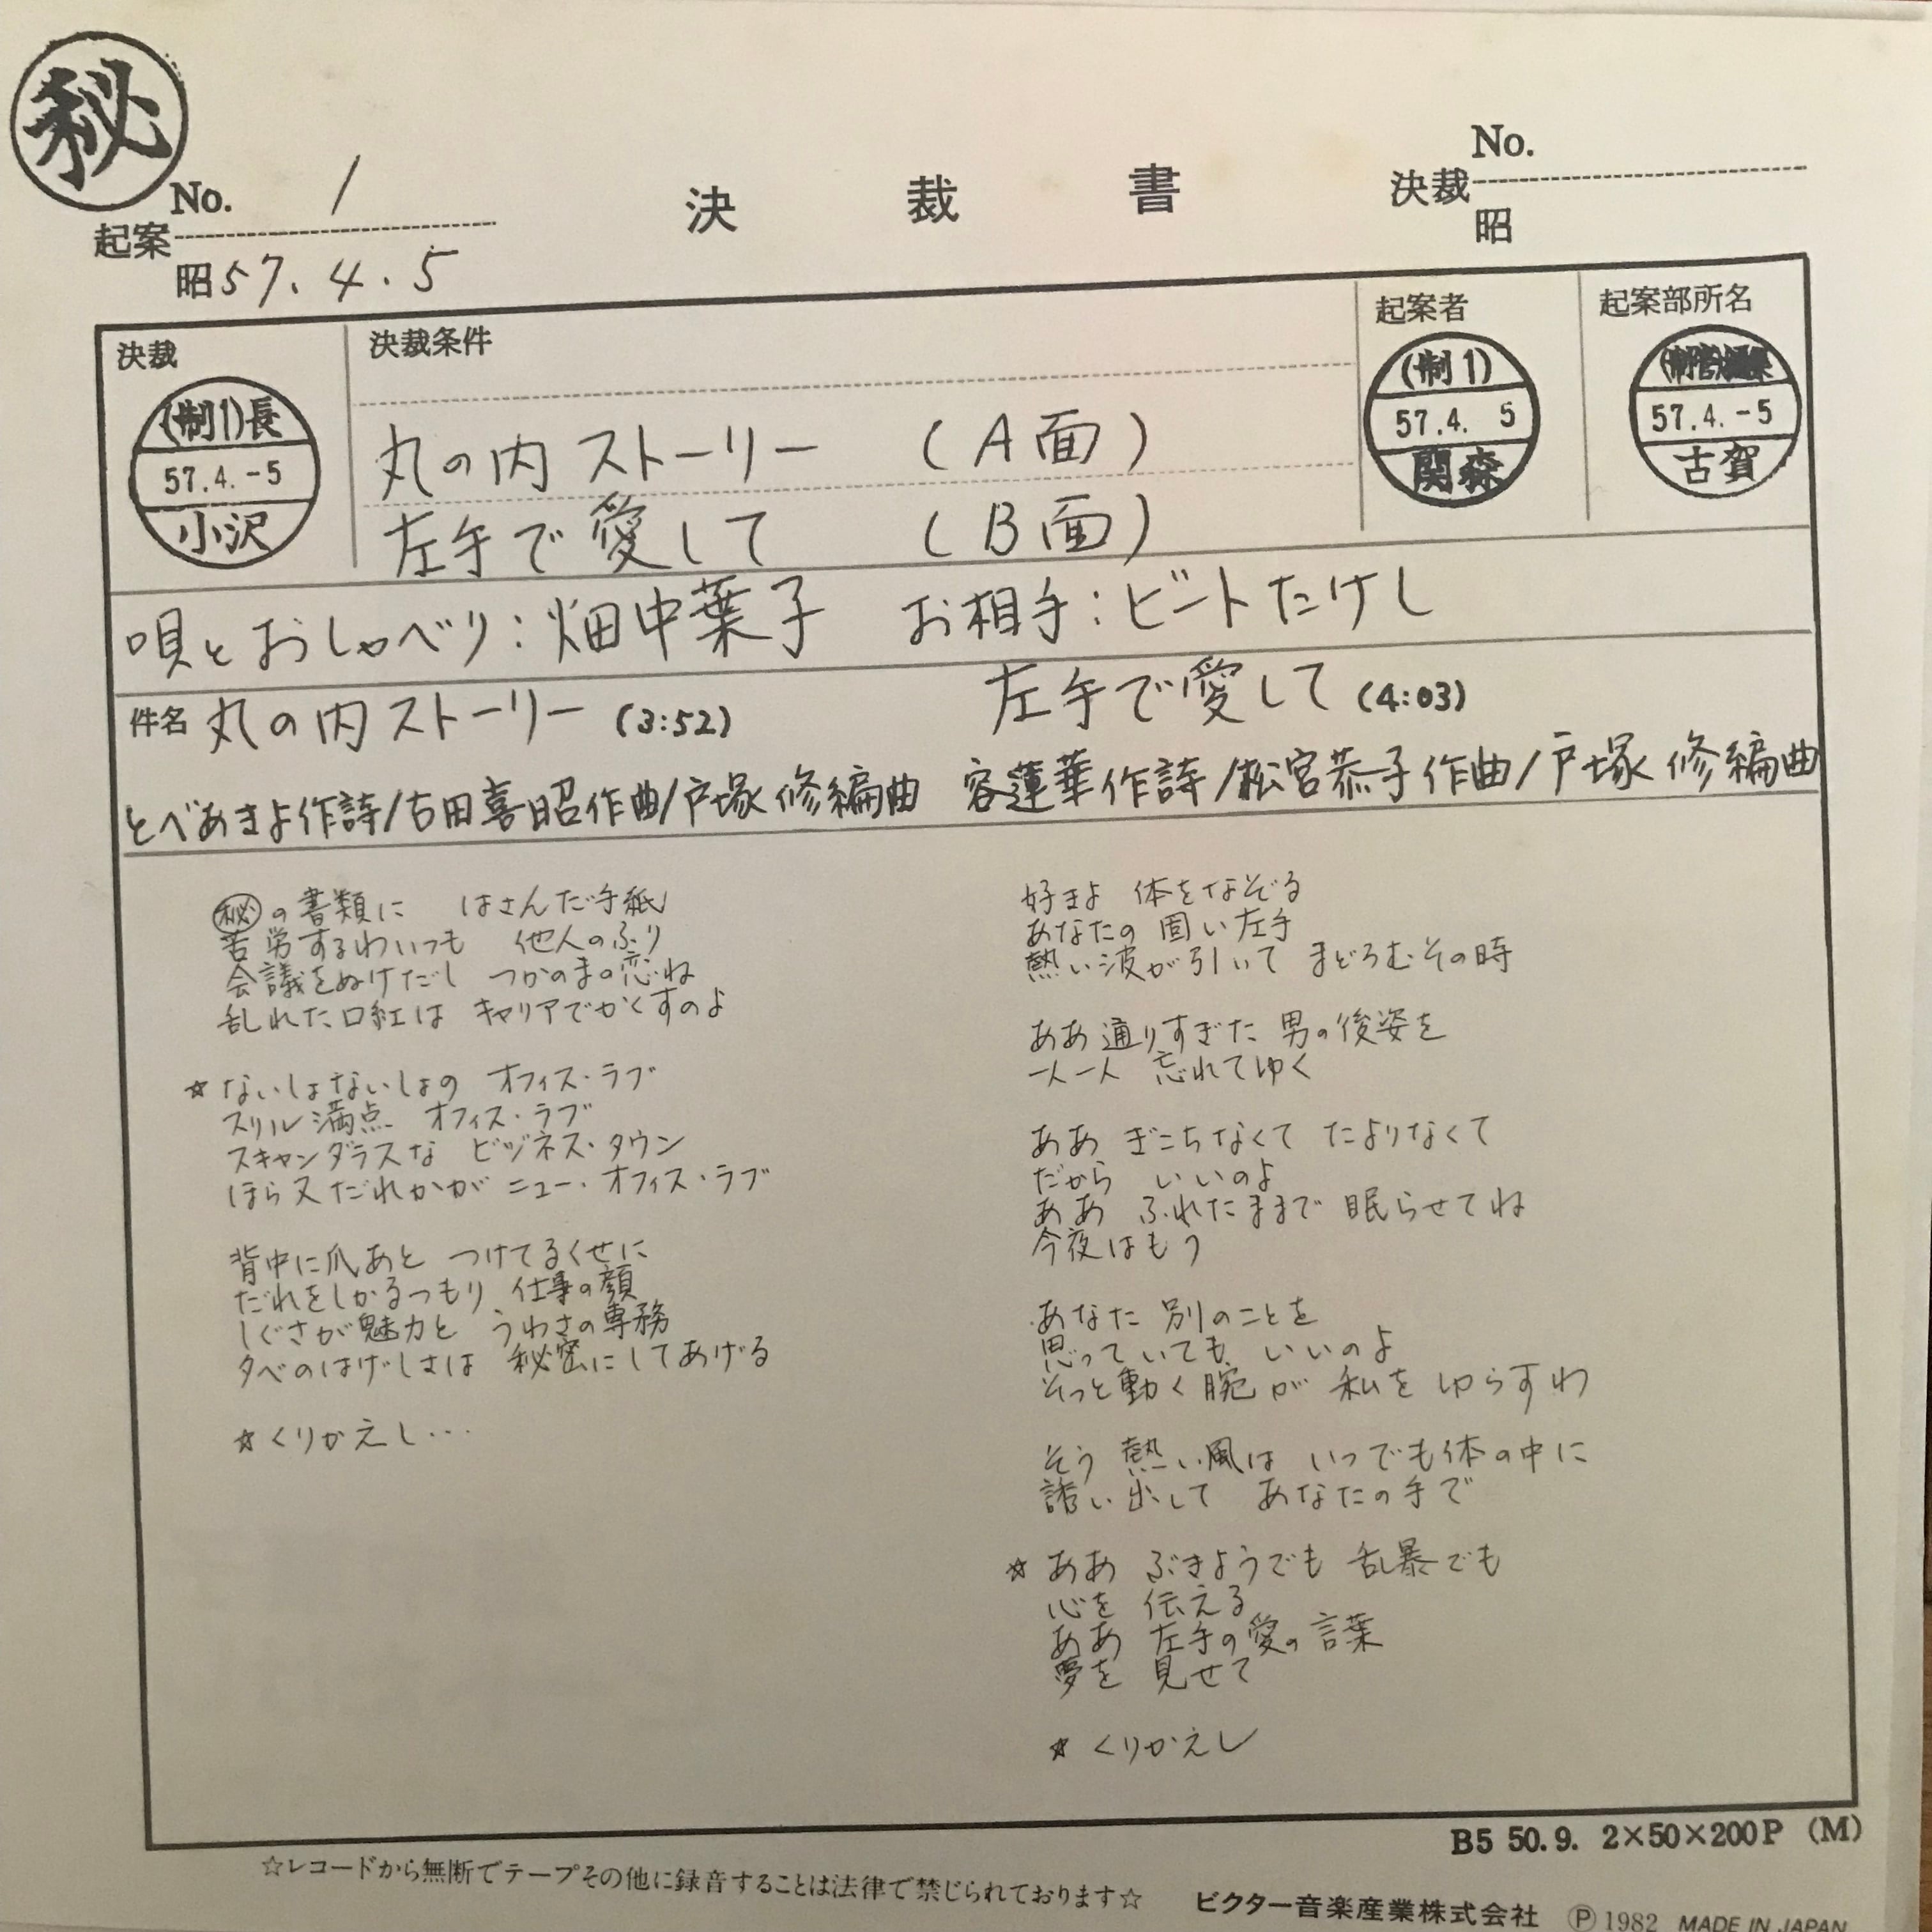 秘
No. 1
起案
昭57.4.5
決裁書
No.
決裁
昭
決裁
(制1)長
57.4.-5
小沢
決裁条件
丸の内ストーリー (A面)
左手で愛して (B面)
起案者
(制1)
57.4. 5
関森
起案部所名
57.4.-5
古賀
唄とおしゃべり:畑中葉子 お相手:ビートたけし
件名 丸の内ストーリー (3:52)
とべあきよ作詩/古田喜昭作曲/戸塚修編曲
左手で愛して (4:03)
容蓮華作詩/松宮恭子作曲/戸塚修編曲
㊙の書類に はさんだ手紙
苦労するわいつも 他人のふり
会議をぬけだし つかのまの恋ね
乱れた口紅は キャリアでかくすのよ
☆ないしょないしょの オフィス・ラブ
スリル満点 オフィス・ラブ
スキャンダラスな ビジネス・タウン
ほら又だれかが ニュー・オフィス・ラブ
背中に爪あと つけてるくせに
だれをしかるつもり 仕事の顔
しぐさが魅力と うわさの専務
夕べのはげしさは 秘密にしてあげる
☆くりかえし…
好きよ 体をなぞる
あなたの 固い左手
熱い波が引いて まどろむその時
ああ通りすぎた 男の後姿を
一人一人 忘れてゆく
ああ ぎこちなくて たよりなくて
だから いいのよ
ああ ふれたままで 眠らせてね
今夜はもう
あなた 別のことを
思っていても いいのよ
そっと動く腕が 私をゆらすわ
そう 熱い風は いつでも体の中に
誘い出して あなたの手で
☆ああ ぶきようでも 乱暴でも
心を 伝える
ああ 左手の愛の言葉
夢を 見せて
☆くりかえし
B5 50.9. 2×50×200P (M)
☆レコードから無断でテープその他に録音することは法律で禁じられております☆
ビクター音楽産業株式会社 Ⓟ1982 MADE IN JAPAN